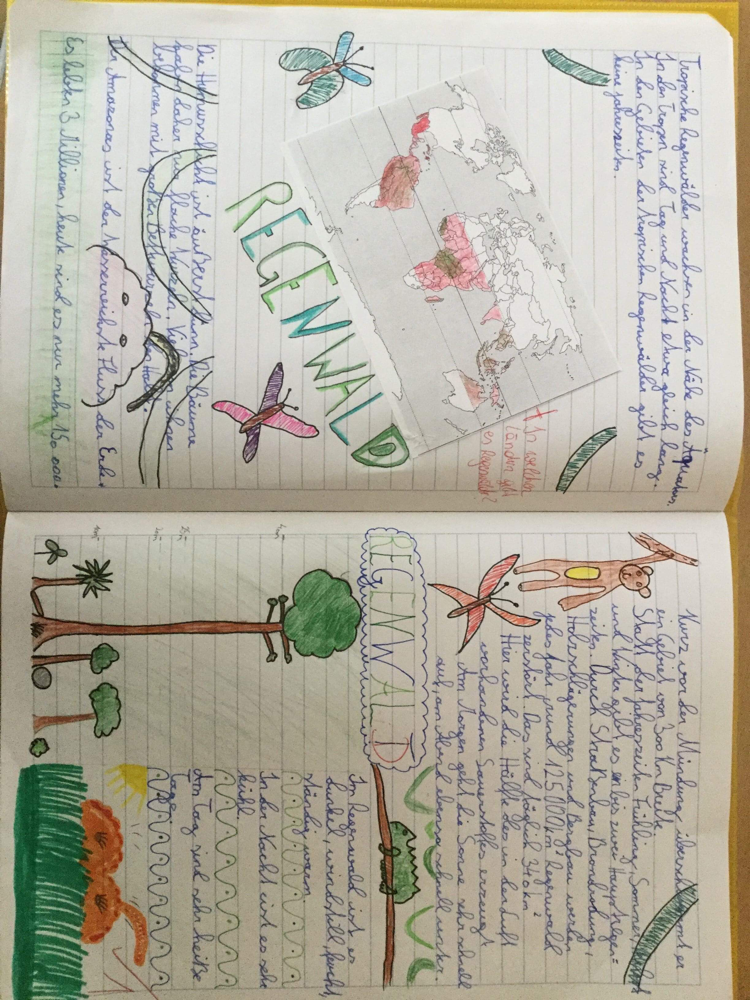 Tropische Regenwälder wachsen in der Nähe des Äquators.
In den Tropen sind Tag und Nacht etwa gleich lang.
In den Gebieten der tropischen Regenwälder gibt es
keine Jahreszeiten.
+ In welchen
Ländern gibt
es Regenwälder?
REGENWALD
Die Humusschicht ist äußerst dünn. Die Bäume
haben daher nur flache Wurzeln. Viele
bekommen mit großen Brettwurzeln Halt.
Der Amazonas ist der Wasserreichste Fluss der Erde.
Es lebten 3 Millionen, heute sind es nur mehr 150 000.
Kurz vor der Mündung überschwemmt er
ein Gebiet von 300 km Breite.
Statt der Jahreszeiten Frühling, Sommer, Herbst
und Winter gibt es ein bis zwei Hauptregen-
zeiten. Durch Straßenbau, Brandrodung,
Holzschlägerungen und Bergbau werden
jedes Jahr rund 125 000 km² Regenwald
zerstört. Das sind täglich 340 km²
Hier wird die Hälfte des in der Luft
vorhandenen Sauerstoffes erzeugt.
Am Morgen geht die Sonne sehr schnell
auf, am Abend ebenso schnell unter.
REGENWALD
Im Regenwald ist es
dunkel, windstill, feucht,
ständig warm
In der Nacht ist es sehr
kühl
Am Tag sind sehr heiße
Tage